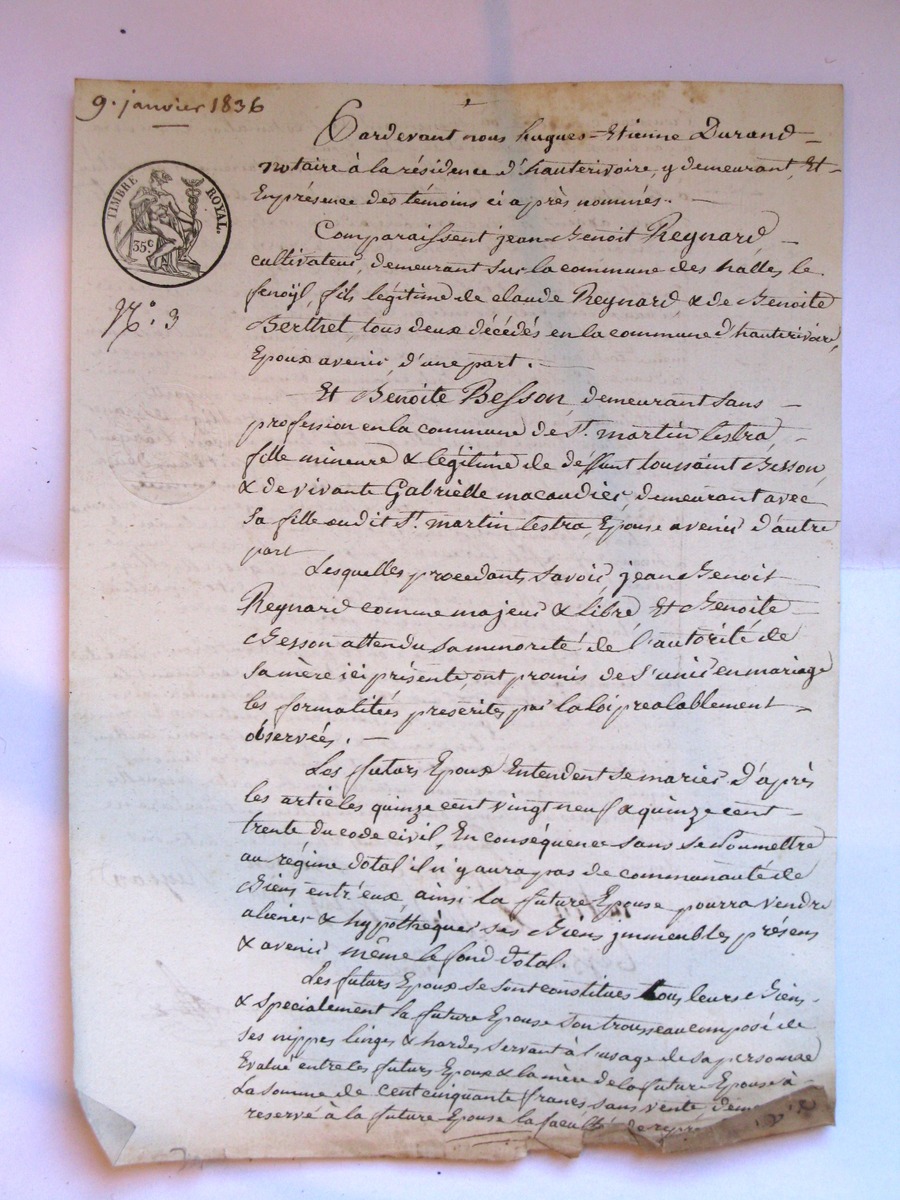 9. janvier 1836
Pardevant nous hugues-Etienne Durand
notaire à la résidence d'hauterivoire, y demeurant, Et
En présence des témoins ci après nommés.
TIMBRE ROYAL.
35c
Comparaissent jean Benoit Reynard,
cultivateur, demeurant sur la commune des halles le
fenoÿl, fils légitime de claude Reynard & de Benoite
N.° 3
Berthet, tous deux décédés en la commune d'hauterivoire,
Epoux avenir, d'une part.
Et Benoite Besson, demeurant sans
profession en la commune de St. martin lestra,
fille mineure & légitime de deffunt toussaint Besson,
& de vivante Gabrielle macaudier, demeurant avec
sa fille audit St. martin lestra, Epouse avenir d'autre
part
Lesquelles procedants, savoir jean Benoit
Reynard comme majeur & libre Et Benoite
Besson attendu sa minorité de l'autorité de
sa mère ici présente, ont promis de s'unir en mariage
les formalités prescrites par la loi préalablement
observées.
Les futurs Epoux Entendent se marier d'après
les articles quinze cent vingt neuf & quinze cent
trente du code civil, En conséquence sans se soumettre
au régime dotal il n'y aura pas de communauté de
Biens entr'eux, ainsi la future Epouse pourra vendre
aliener & hypothèquer ses Biens immeubles présens
& avenir même le fond dotal.
Les futurs Epoux se sont constitués tous leurs Biens
& specialement la future Epouse son trousseau composé de
ses nippes linges & hardes servant à l'usage de sa personne
Evalué entre les futurs Epoux & la mère de la future Epouse à
La somme de cent cinquante francs sans vente
reservé à la future Epouse la faculté de